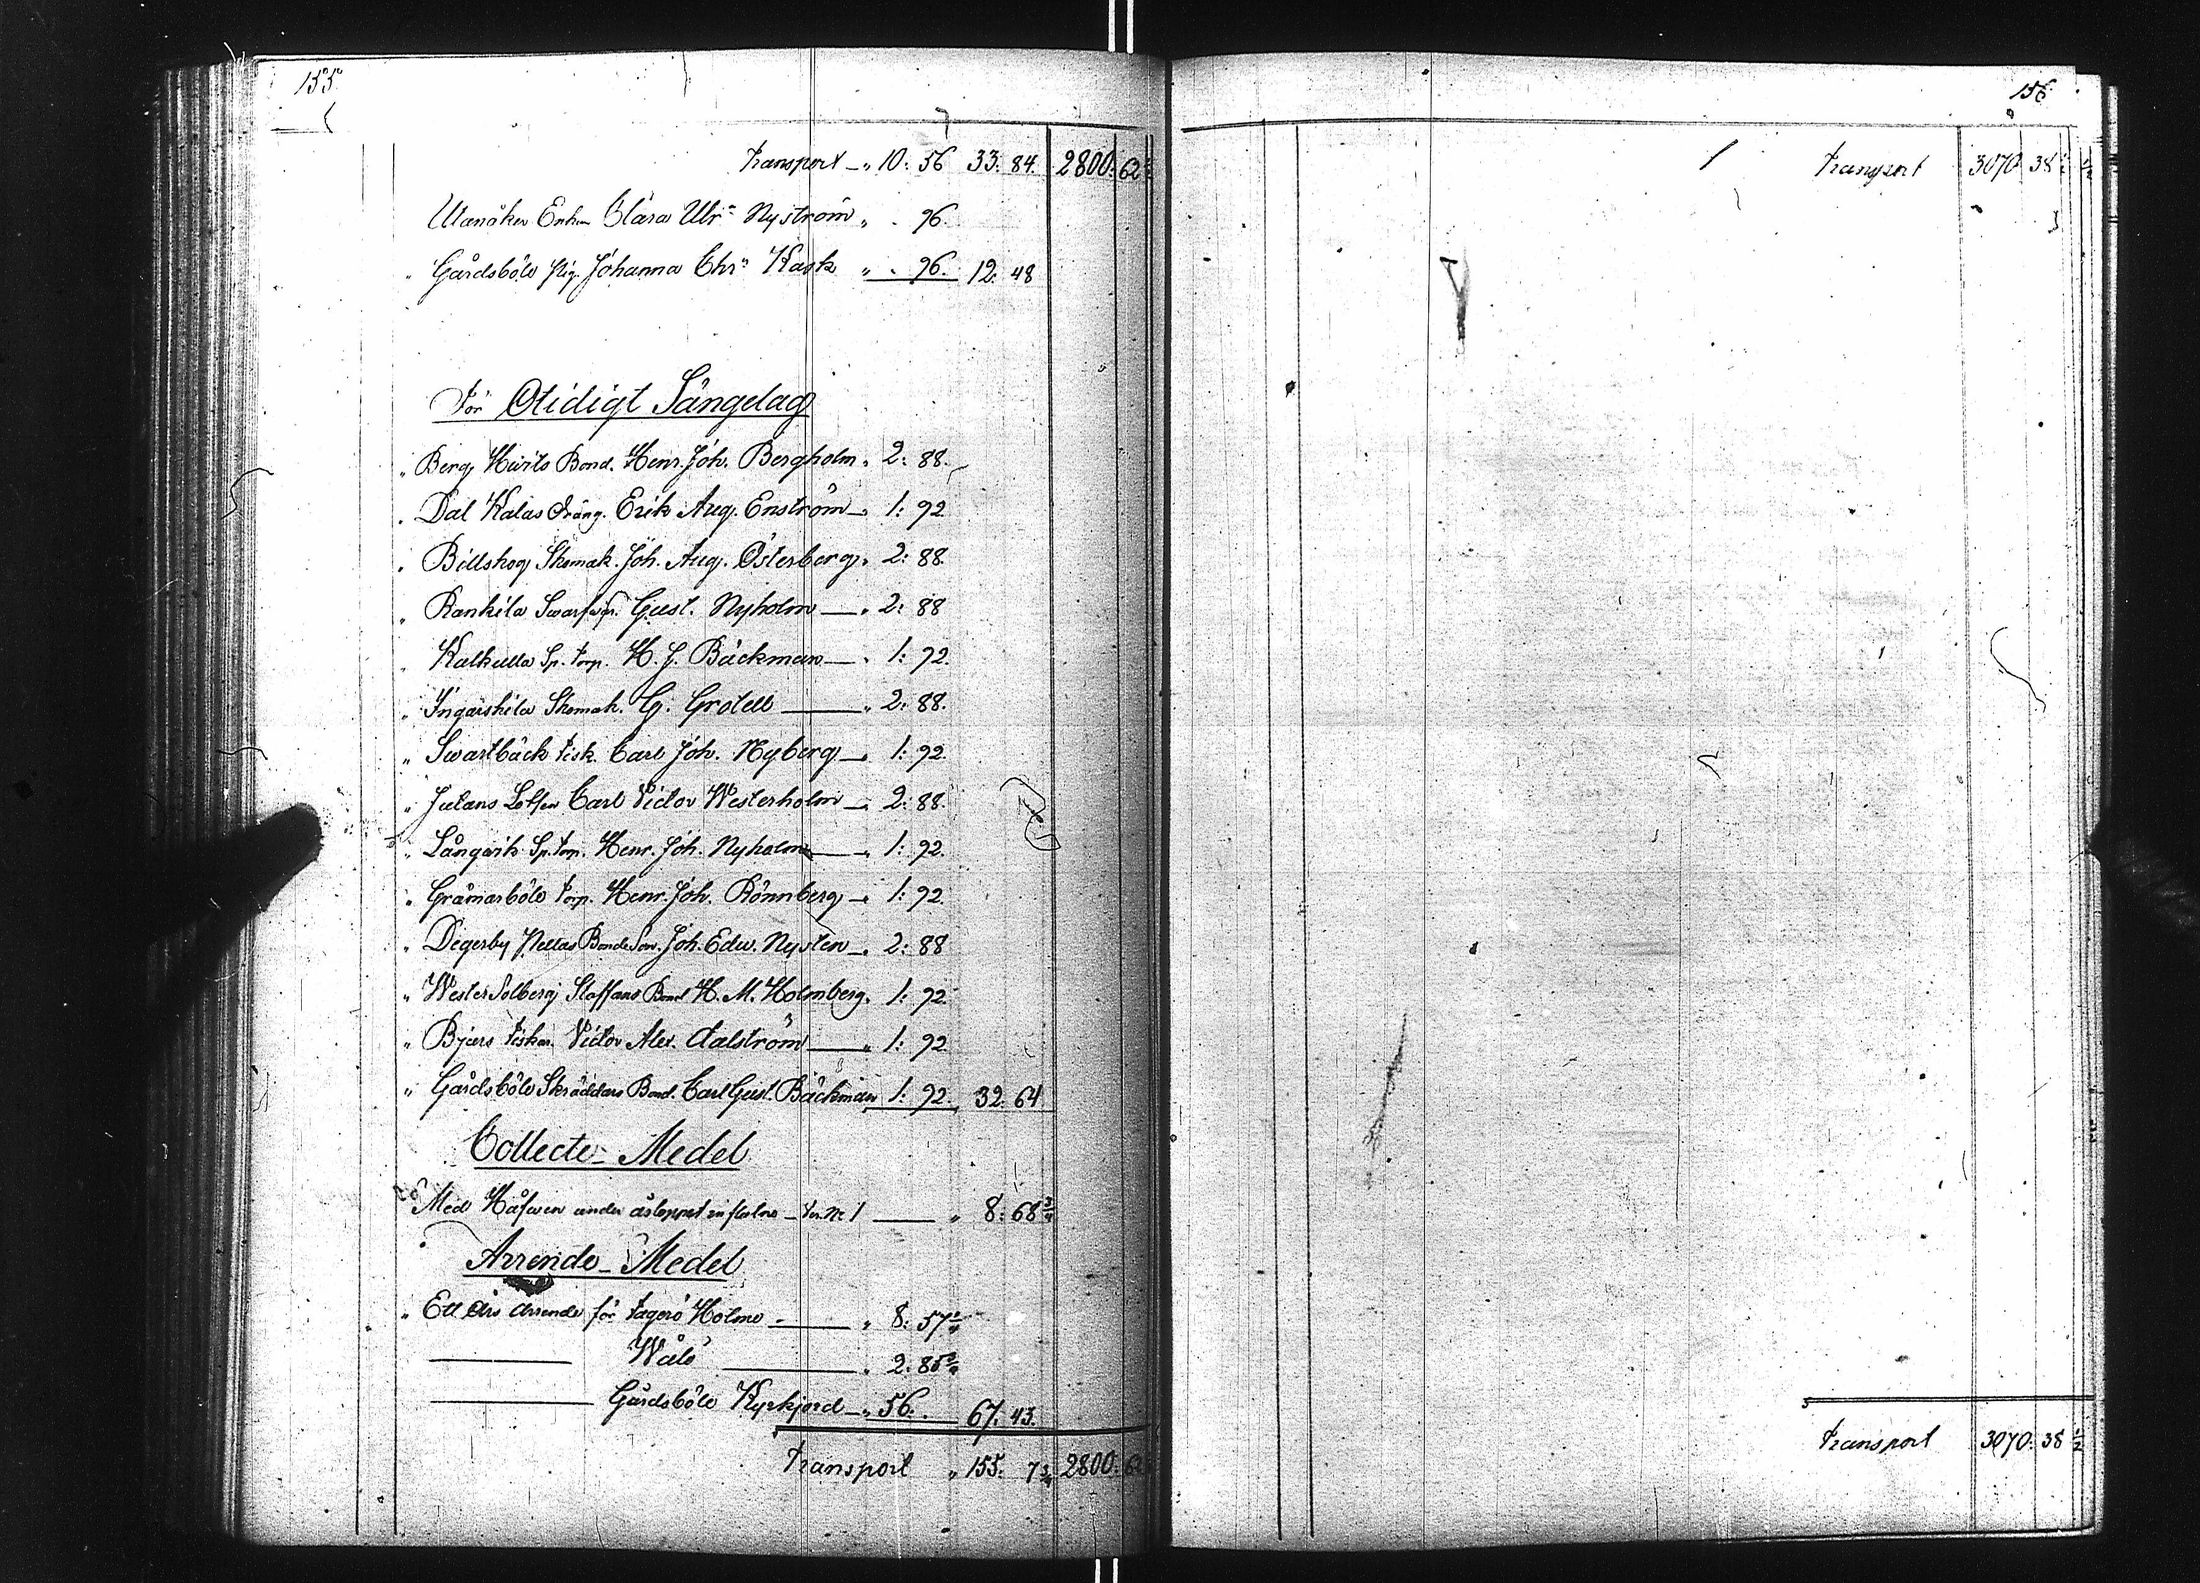 155.
Transport — „ 10: 56 33: 84. 2800: 62
Utanåker Enkan Clara Ulr:a Nyström „ - 96.
„ Gårdsböle Pig. Johanna Chr:a Kask „ - 96. 12: 48
För Otidigt Sängelag
„ Berg Hwits Bond. Henr. Joh. Bergholm „ 2: 88.
„ Dal Kalas Dräng. Erik Aug. Enström — „ 1: 92
„ Billskog Skomak. Joh. Aug. Österberg „ 2: 88.
„ Rankila Gust. Nyholm — „ 2: 88
„ Kalkulla Sp. Torp. H. J. Bäckman — „ 1: 92.
„ Ingarskila Skomak. G. Grotell — „ 2: 88.
„ Swartbäck Fisk. Carl Joh. Nyberg — „ 1: 92.
„ Jutans Lotsen Carl Victor Westerholm — „ 2: 88.
„ Långwik Sp. Torp. Henr. Joh. Nyholm — „ 1: 92.
„ Gråmarböle Torp. Henr. Joh. Rönnberg — „ 1: 92.
„ Degerby Pellas Bonde Son. Joh. Edw. Nysten — „ 2: 88
„ Wester Solberg Staffans Bond H. M. Holmberg. 1: 92
„ Byers Fiskar. Victor Alex. Aalström — „ 1: 92
„ Gårdsböle Skräddars Bond. Carl Gust. Bäckman 1: 92. 32: 64
Collecte-Medel
Med Håfwen under året — N:o 1 — „ 8: 68 3/4
Arrende-Medel
„ Ett Års Arrende för Fagerö Holme — „ 8: 57 1/4
— Wålö — „ 2: 85 3/4
— Gårdsböle Kyrkjord — „ 56. - 67. 43.
Transport „ 155: 7 3/4 2800: 62
156
Transport 3070: 38 1/2
Transport 3070: 38 1/2